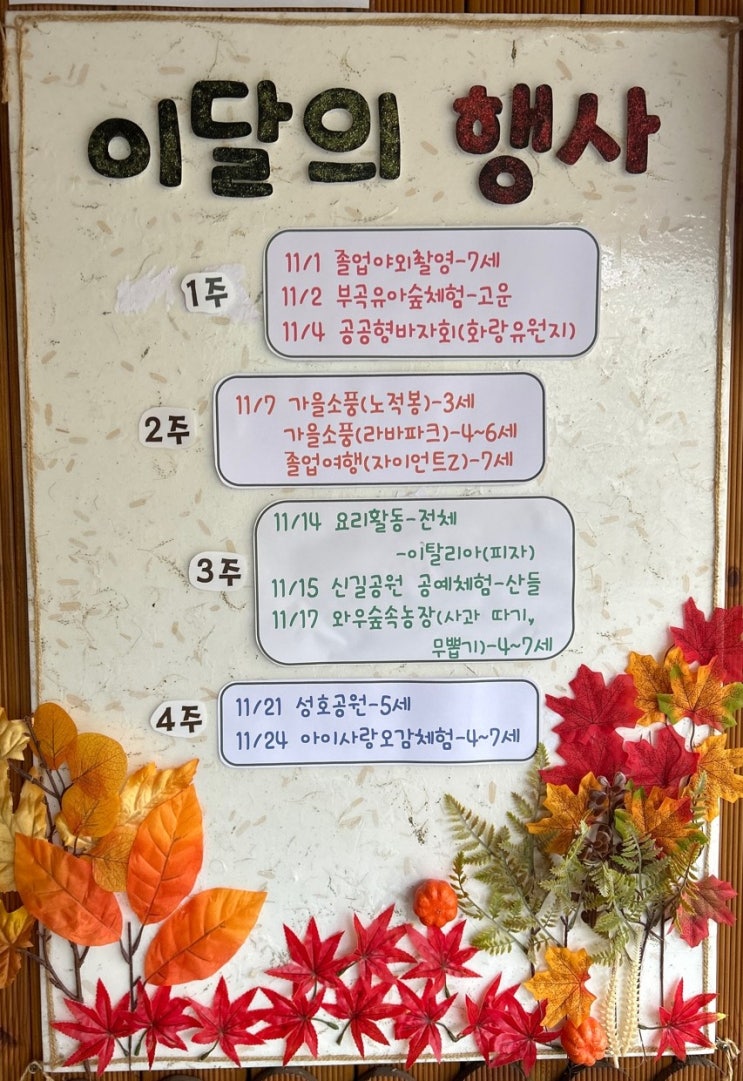 이달의 행사
1주
11/1 졸업야외촬영-7세
11/2 부곡유아숲체험-고운
11/4 공공형바자회(화랑유원지)
2주
11/7 가을소풍(노적봉)-3세
가을소풍(라바파크)-4~6세
졸업여행(자이언트Z)-7세
3주
11/14 요리활동-전체
-이탈리아(피자)
11/15 신길공원 공예체험-산들
11/17 와우숲속농장(사과 따기,
무뽑기)-4~7세
4주
11/21 성호공원-5세
11/24 아이사랑오감체험-4~7세